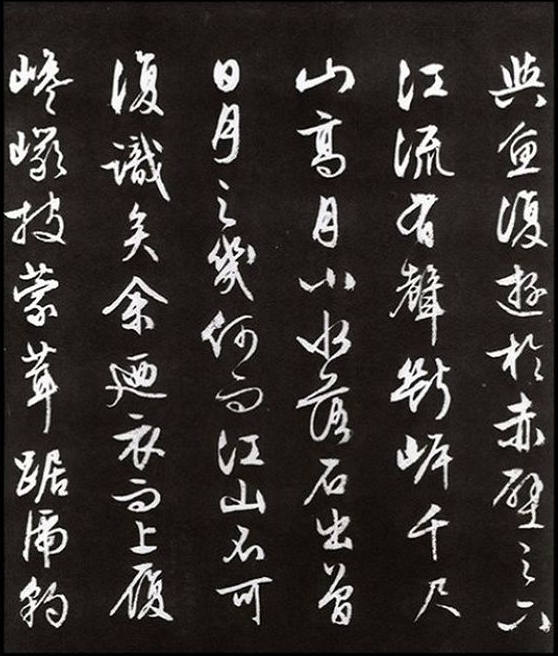 與魚復遊於赤壁之下
江流有聲斷岸千尺
山高月小水落石出曾
日月之幾何而江山不可
復識矣余廼衣而上履
巉巖披蒙茸踞虎豹